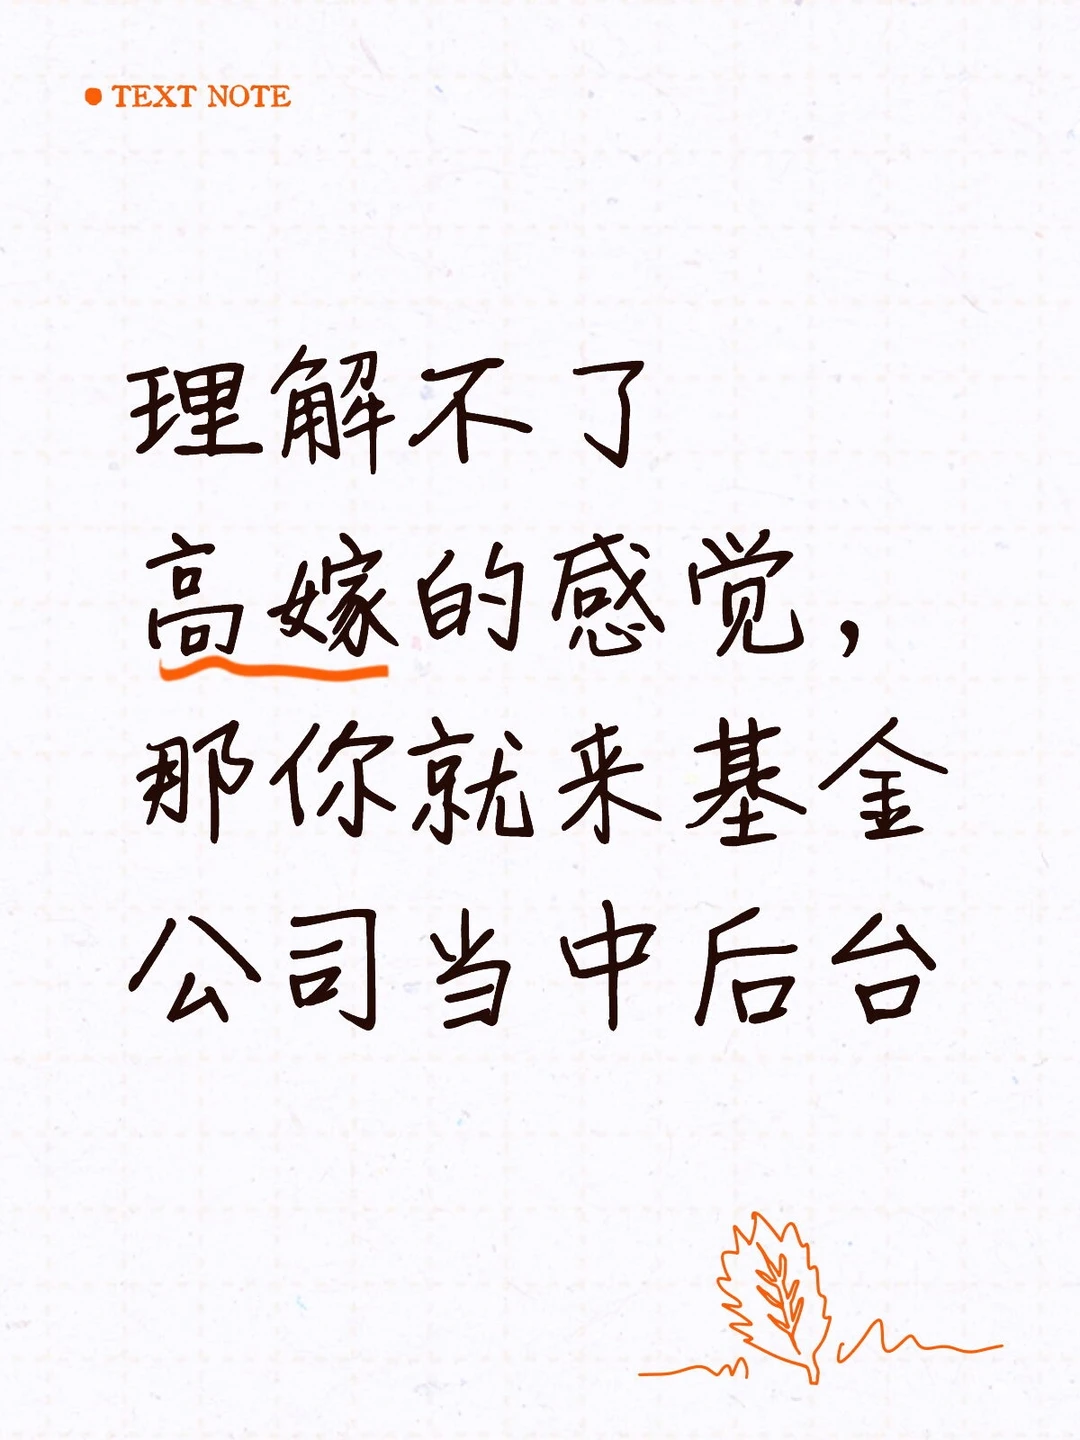 TEXT NOTE
理解不了
高嫁的感觉，
那你就来基金
公司当中后台